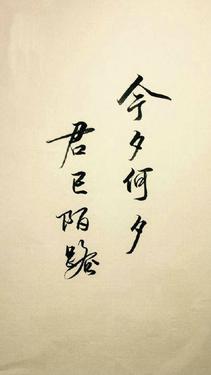 今夕何夕
君已陌路